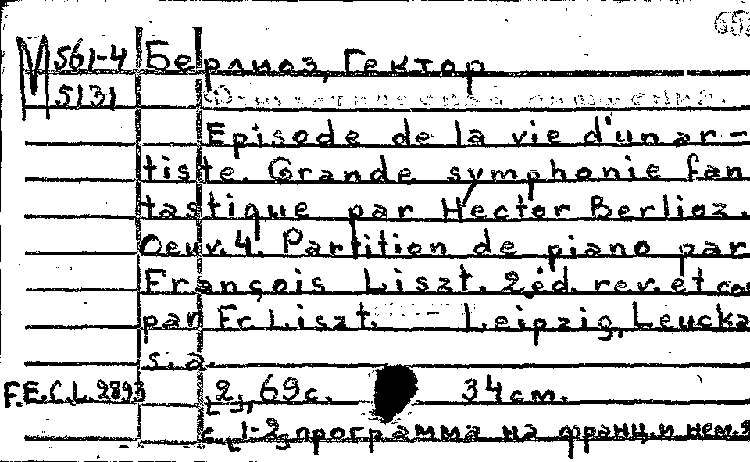 М 561-4 Берлиоз, Гектор
5131
Episode de la vie d'un ar-
tiste. Grande symphonie fan
tastique par Hector Berlioz.
Oeuv. 4. Partition de piano par
François Liszt. 2.éd. rev. et co
par Fr. Liszt. — Leipzig, Leucka
s.a.
F.E.C.L. 2893 [2], 69 с. 34 см.
с. [1-2] программа на франц. и нем. я